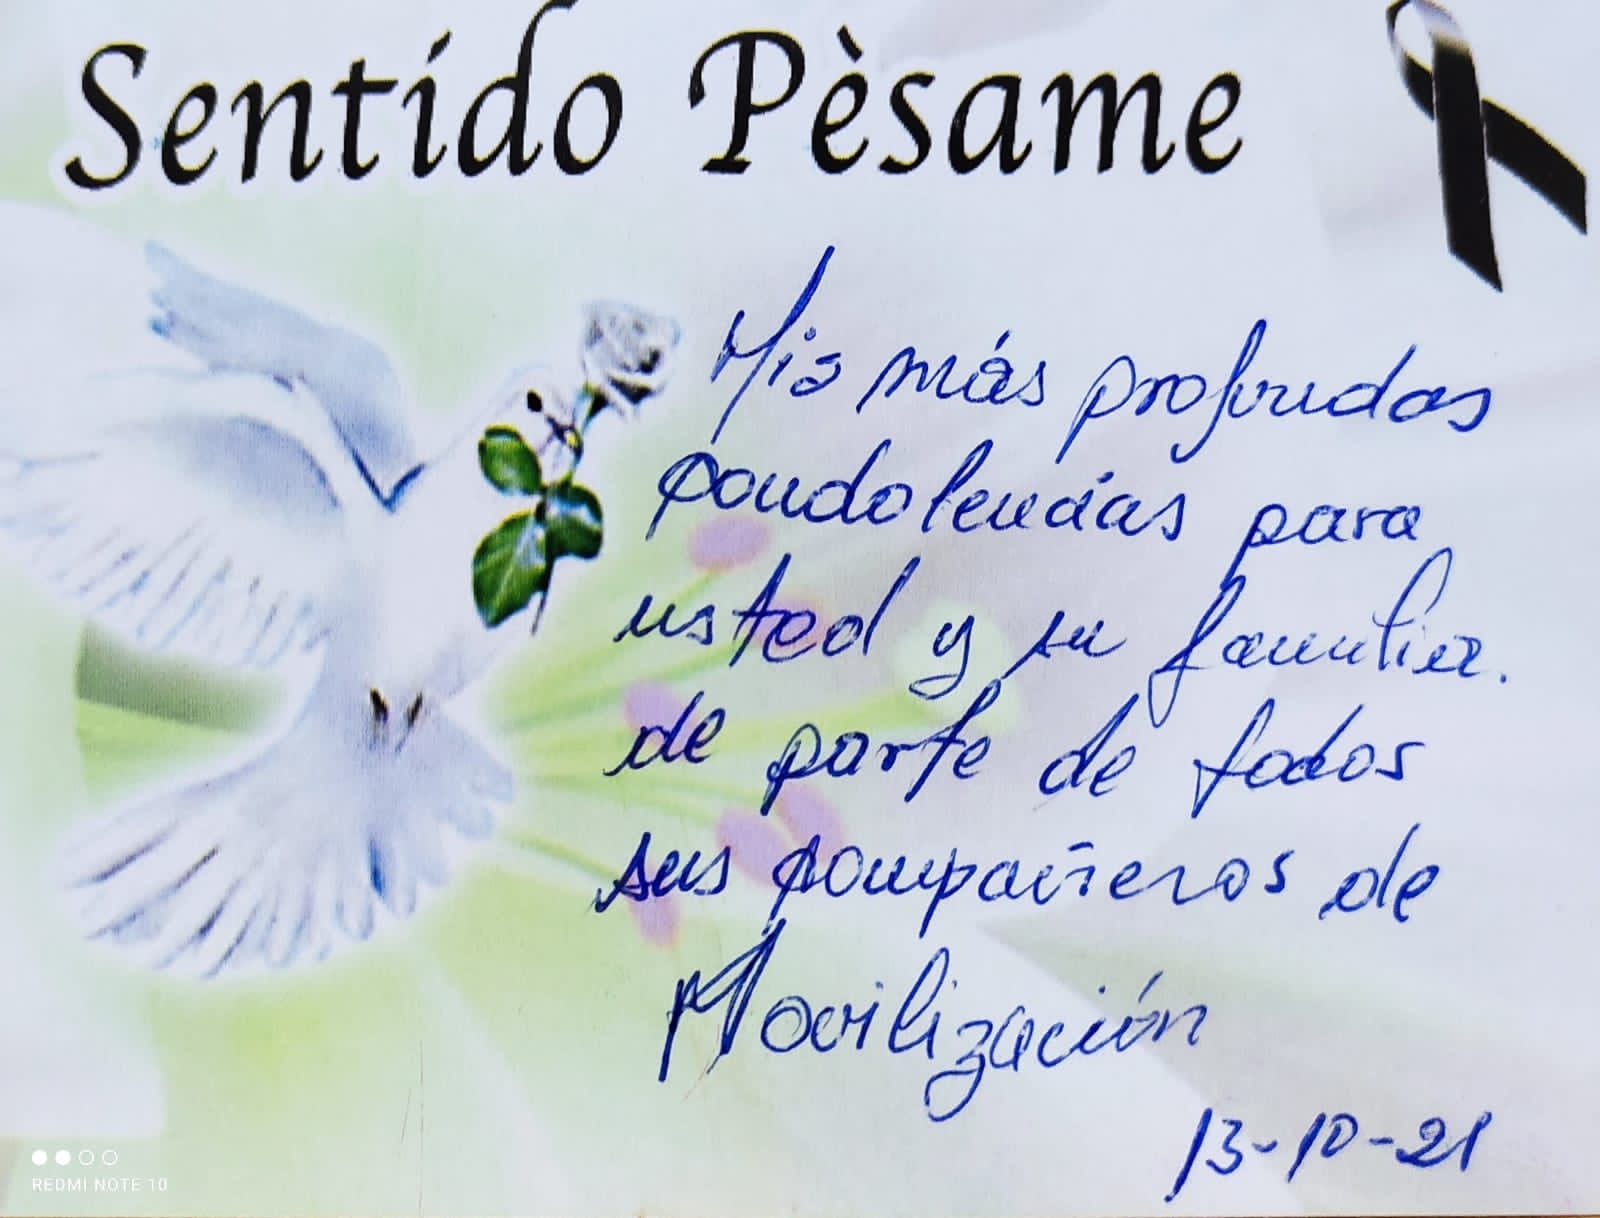 Sentido Pèsame
Mis más profundas
condolencias para
usted y su familia.
de parte de todos
sus compañeros de
Movilización
13-10-21
REDMI NOTE 10